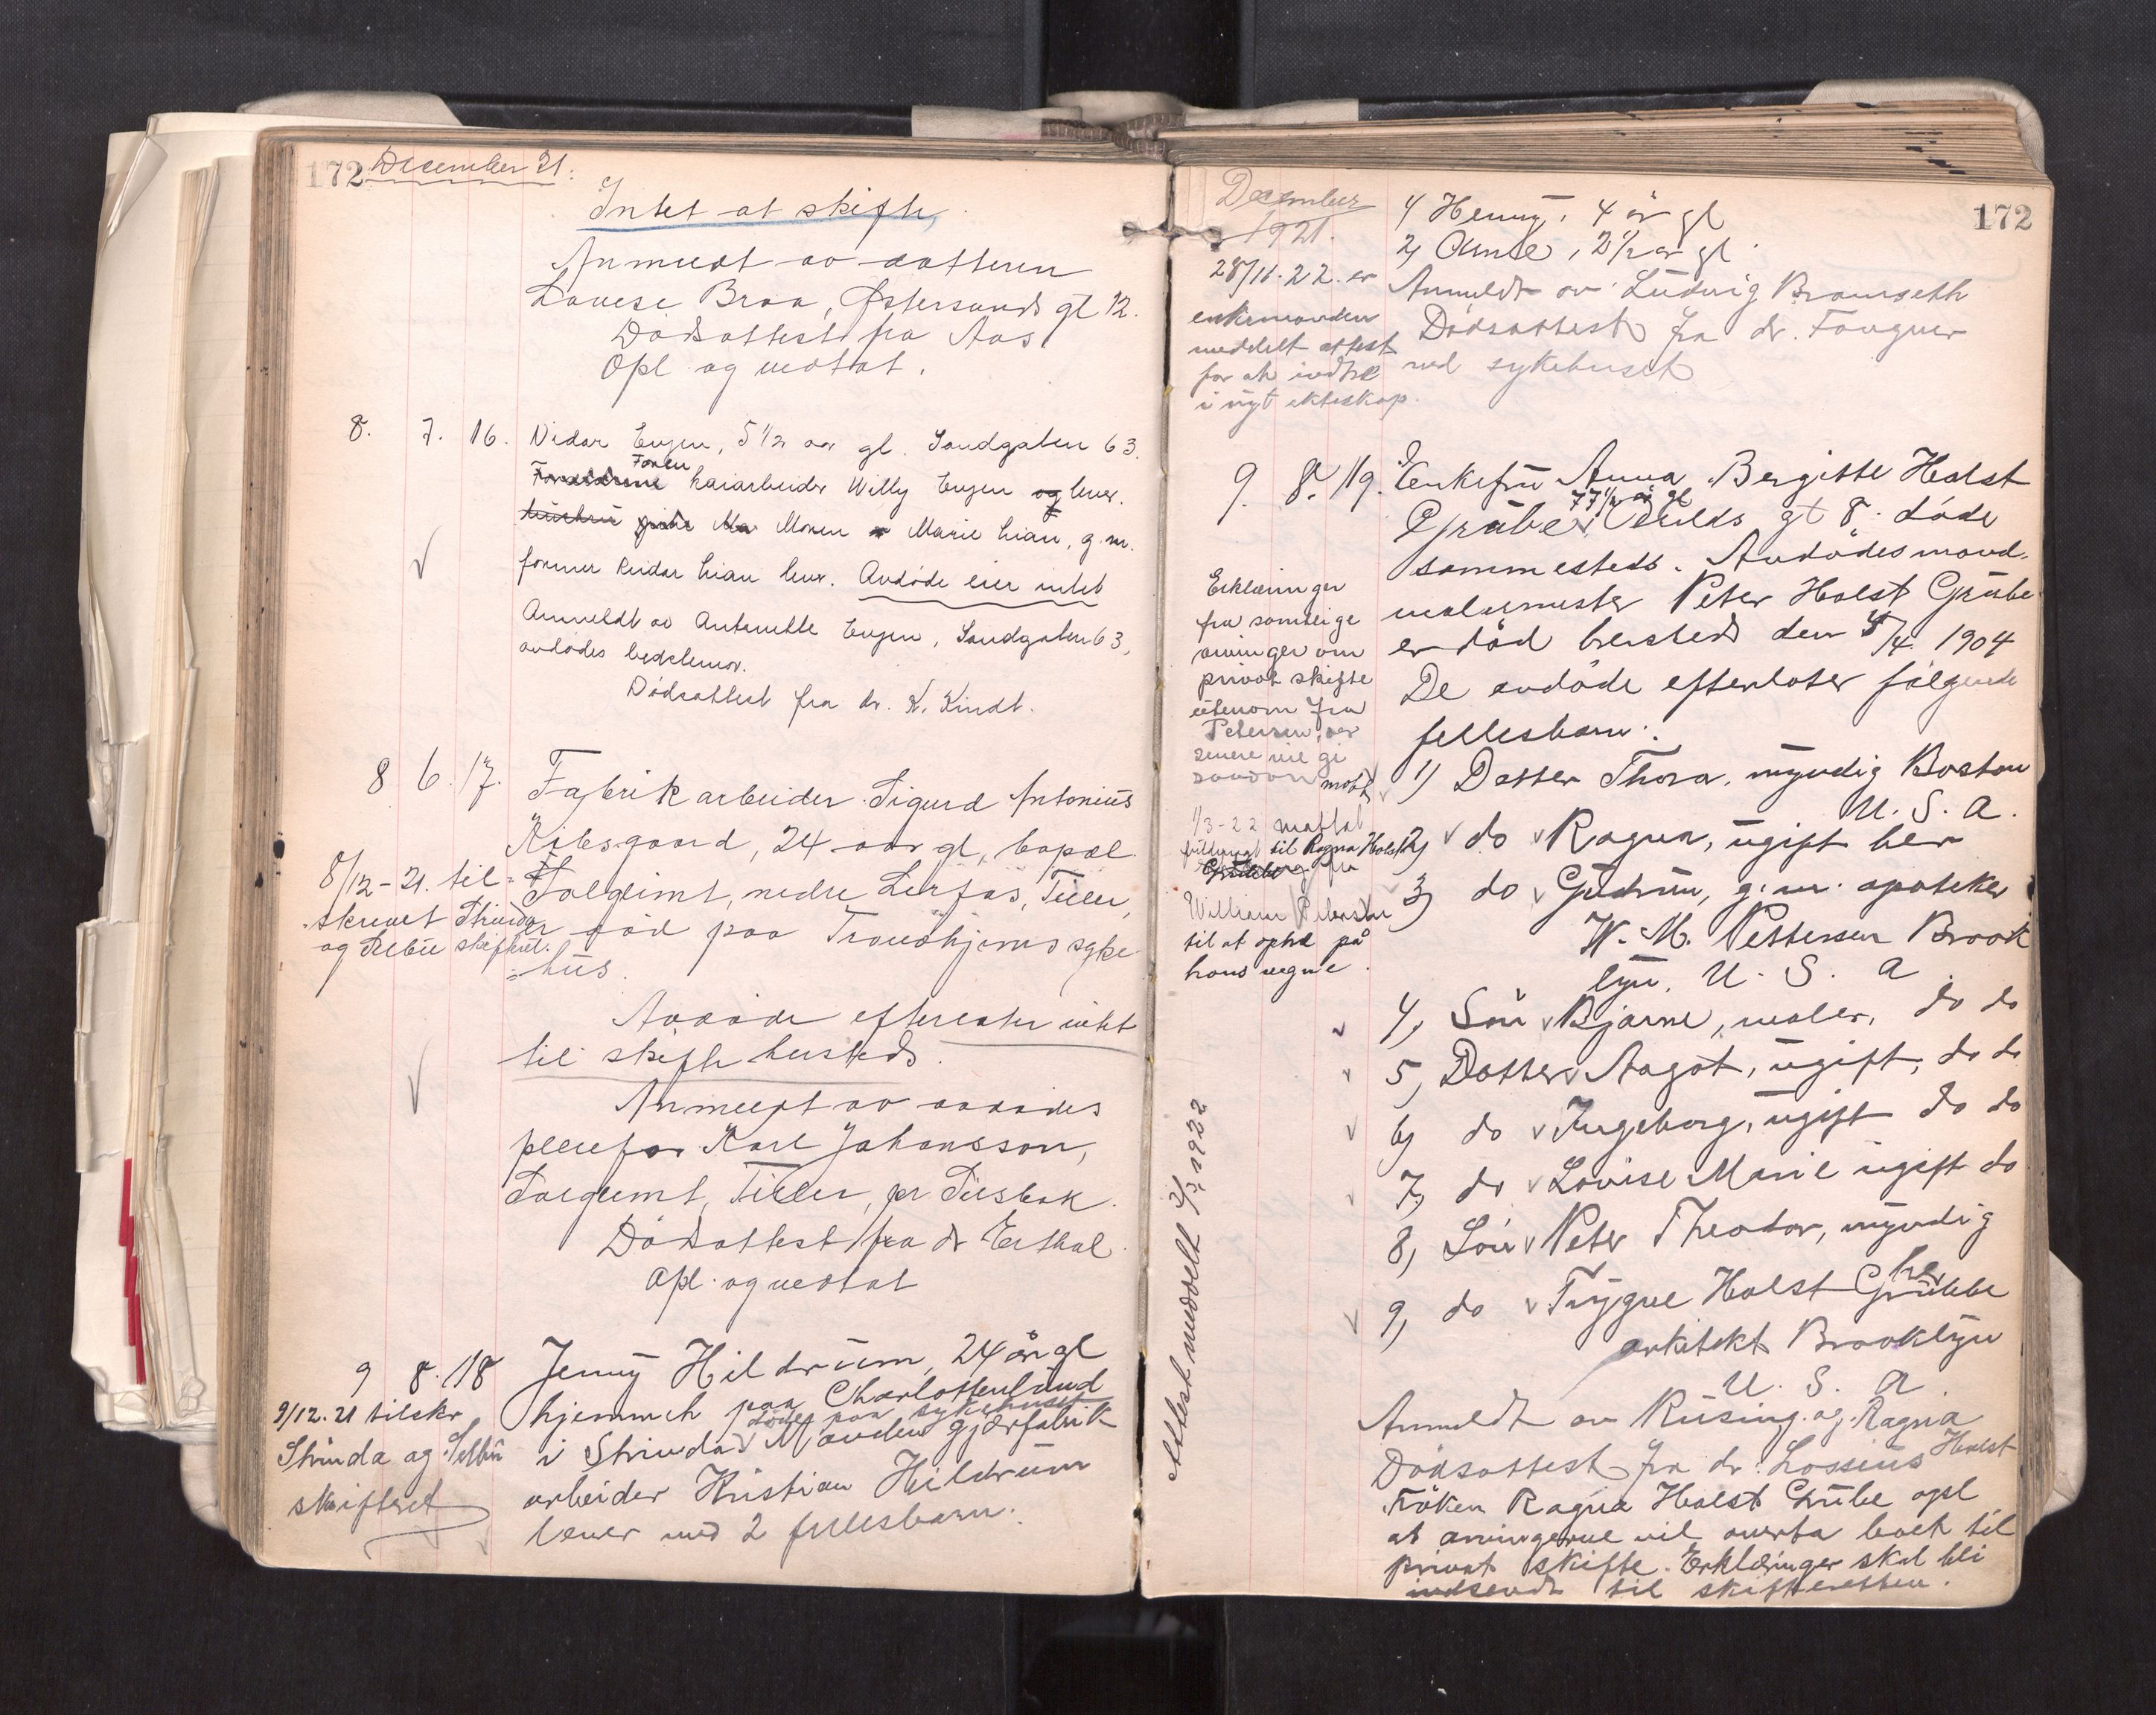 172 December 21.
Intet at skifte,
Anmeldt av datteren
Lovise Braa, Østersunds gt 12.
Dødsattest fra Aas
Opl og vedtat.
8. 7. 16. Vidar Engen, 5 1/2 aar gl. Sandgaten 63.
Faren
kaiarbeider Willy Engen og lever.
Moren Marie Lian, g. m.
former Reidar Lian lever. Avdøde eier intet
Anmeldt av Antonette Engen, Sandgaten 63,
avdødes bedstemor.
Dødsattest fra dr. K. Kindt.
8 6. 17. Fabrikarbeider Sigurd Antonius
Kibsgaard, 24 aar gl, bopæl
8/12-21. til-
Solglimt, nedre Lerfos, Tiller,
skrevet Strinda
er død paa Trondhjems syke
og Selbu skifteret.
=hus.
Avdøde efterlater intet
til skifte hersteds.
Anmeldt av avdødes
pleiefar Karl Johansson,
Solglimt, Tiller, pr Tillsbak.
Dødsattest fra dr
Opl. og vedtat
9 8. 18 Jenny Hildrum, 24 år gl
hjemmeh paa Charlottenlund
døde paa sykehuset
9/12. 21 tilskr
i Strinda. Manden gjærfabrik
Strinda og Selbu
arbeider Kristian Hildrum
skifteret
lever med 2 fellesbarn.
December
1921.
172
1) Henny, 4 år gl
2) Arne, 2 1/2 år gl.
28/11. 22. er
enkemanden
meddelt attest
for at indtre
i nyt ekteskap.
Anmeldt av Ludvig Bromseth
Dødsattest fra dr. Fougner
ved sykehuset
9. 8. 19. Enkefru Anna Bergitte Holst
77 1/2 år gl
Grübe, gt 8. døde
sammesteds. Avdødes mand
malermester Peter Holst Grübe
er død hersteds den 4/4 1904
De avdøde efterlater følgende
fellesbarn:
Erklæringer
fra samtlige
arvinger om
privat skifte
utenom fra
Petersen, der
senere vil gi
saadan
mott
1/3-22 mottat
fullmagt til Ragna Holst
Grübe fra
William Petersen
til at optre på
hans vegne.
1) Datter Thora, myndig Boston
U. S. A.
2) do Ragna, ugift her
3) do Gudrun, g. m. apoteker
W. M. Pettersen Brook
lyn. U. S. A.
4) Søn Bjarne, maler, do do
5) Datter Aagot, ugift, do do
6) do Ingeborg, ugift do do
7) do Lovise Marie ugift do
8) Søn Peter Theodor, myndig
her
9) do Trygve Holst Grübbe
arkitekt Brooklyn
U. S. A.
Attest meddelt 2/3 1922
Anmeldt av Rüsing og Ragna
Holst
Dødsattest fra dr. Lossius
Frøken Ragna Holst Grübe opl
at arvingerne vil overta boet til
privat skifte. Erklæringer skal bli
indsendt til skifteretten.